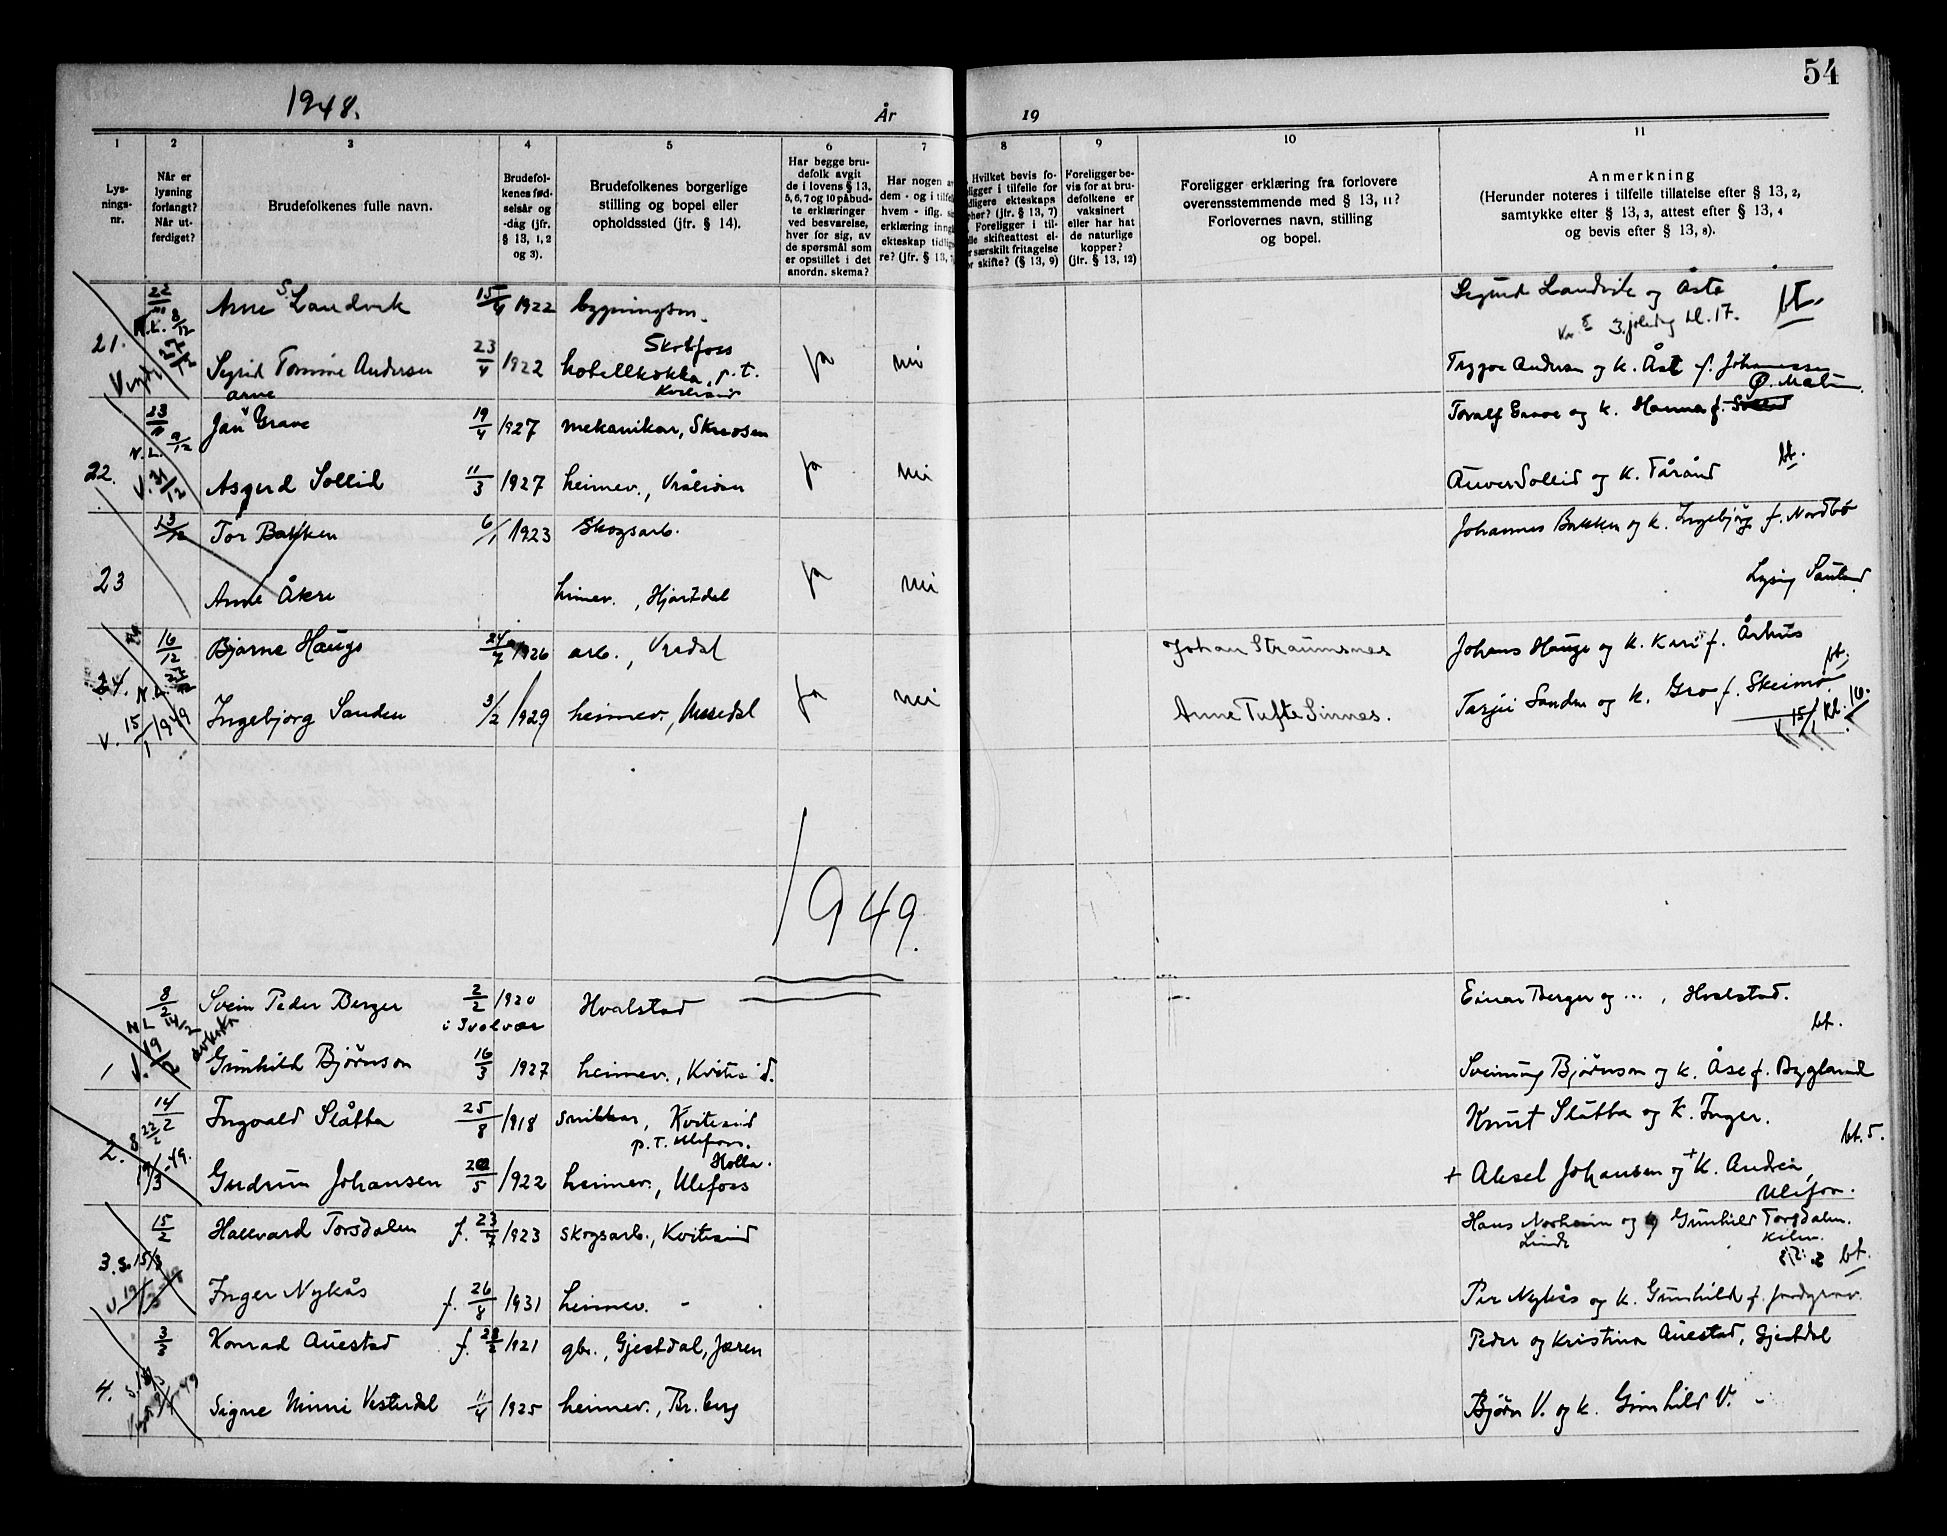 54
1948.
År
19
1
2
3
4
5
6
7
8
9
10
11
Lys-
nings-
nr.
Når er
lysning
forlangt?
Når ut-
ferdiget?
Brudefolkenes fulle navn.
Brudefol-
kenes fød-
selsår og
-dag (jfr.
§ 13, 1, 2
og 3).
Brudefolkenes borgerlige
stilling og bopel eller
opholdssted (jfr. § 14).
Har begge bru-
defolk avgit
de i lovens § 13,
5, 6, 7 og 10 påbud-
te erklæringer
ved besvarelse,
hver for sig, av
de spørsmål som
er opstillet i det
anordn. skema?
Har nogen av
dem - og i tilfelle
hvem - iflg.
erklæring inngå
ekteskap tidlig
re? (jfr. § 13,
Hvilket bevis fo-
ligger i tilfelle for
idligere ekteskaps
pher? (jfr. § 13, 7)
Foreligger i til-
lle skifteattest el-
r særskilt fritagelse
or skifte? (§ 13, 9)
Foreligger be-
vis for at bru-
defolkene er
vaksinert
eller har hat
de naturlige
kopper?
(jfr. § 13, 12)
Foreligger erklæring fra forlovere
overensstemmende med § 13, 11?
Forlovernes navn, stilling
og bopel.
Anmerkning
(Herunder noteres i tilfelle tillatelse efter § 13, 2,
samtykke efter § 13, 3, attest efter § 13, 4
og bevis efter § 13, 8).
22/11 Arne S. Landvik 15/4 1922 bygningsm. Sigurd Landvik og Åsta bt.
N.L. 8/12
3 juledag kl. 17.
21. Sigrid Tomine Andersen 23/4 1922 hotellkokka, p.t. ja nei Trygve Andersen og k. Åst f. Johannessen
Skotfoss
Kviteseid
Arne
23/11 Jan Grave 19/4 1927 mekanikar, Toralf Grave og k. Hanna f.
N.L. 9/12
22. V. 31/12 Asgerd Sollid 11/3 1927 heimev., Vråliosen ja nei Sollid og k. Tårånd bt.
13/12 Tor Bakken 6/1 1923 Skogsarb. Johannes Bakken og k. Ingebjörg f. Nordbø
23 Anne Åkre heimev., Hjartdal ja nei Lysing Sauland
16/12 Bjarne Haugs 24/7 1926 arb., Vrådal Johan Straumsnes Johans Hauge og k. Kari f. Århus
24. N.L. Ingebjørg Sanden 3/2 1929 heimev., ja nei Anne Tufte Sinnes. Tarjei Sanden og k. Gro f. Skeimo bt.
V. 15/1 1949 V 15/1 kl. 16.
1949.
8/2 Svein Peder Berger 2/2 1920 Hvalstad Einar Berger og ..., Hvalstad.
N L 14/2 i Svolvær bt.
1 V. 19/2 Gunhild Björnson 16/3 1927 heimev., Kviteseid. Sveinung Björnson og k. Åse f. Bygland
14/2 Ingvald Slåtta 25/8 1918 snikkar, Kviteseid Knut Slåtta og K. Inger.
22/2 p.t. Ulefoss. bt. 5.
Holla.
2. 19/3-49. Gudrun Johansen 20/5 1922 heimev., Ulefoss + Aksel Johansen og + K. Andrea,
Ulefoss.
15/2 Hallvard Torsdalen f. 23/7 1923 skogsarb., Kviteseid Hans Norheim og Gunhild Torsdalen.
Linde bt.
3. S. 15/3 Inger Nykås f. 26/8 1931 heimev. - Per Nykås og k. Gunhild f.
3/3 Konrad Auestad f. 1921 gbr., Gjestdal, Jæren Peder og Kristina Auestad, Gjestdal
4. Signe Minni Vesterdal 11/4 1925 heimev., Br.berg Bjørn V. og k. Gunhild V. -